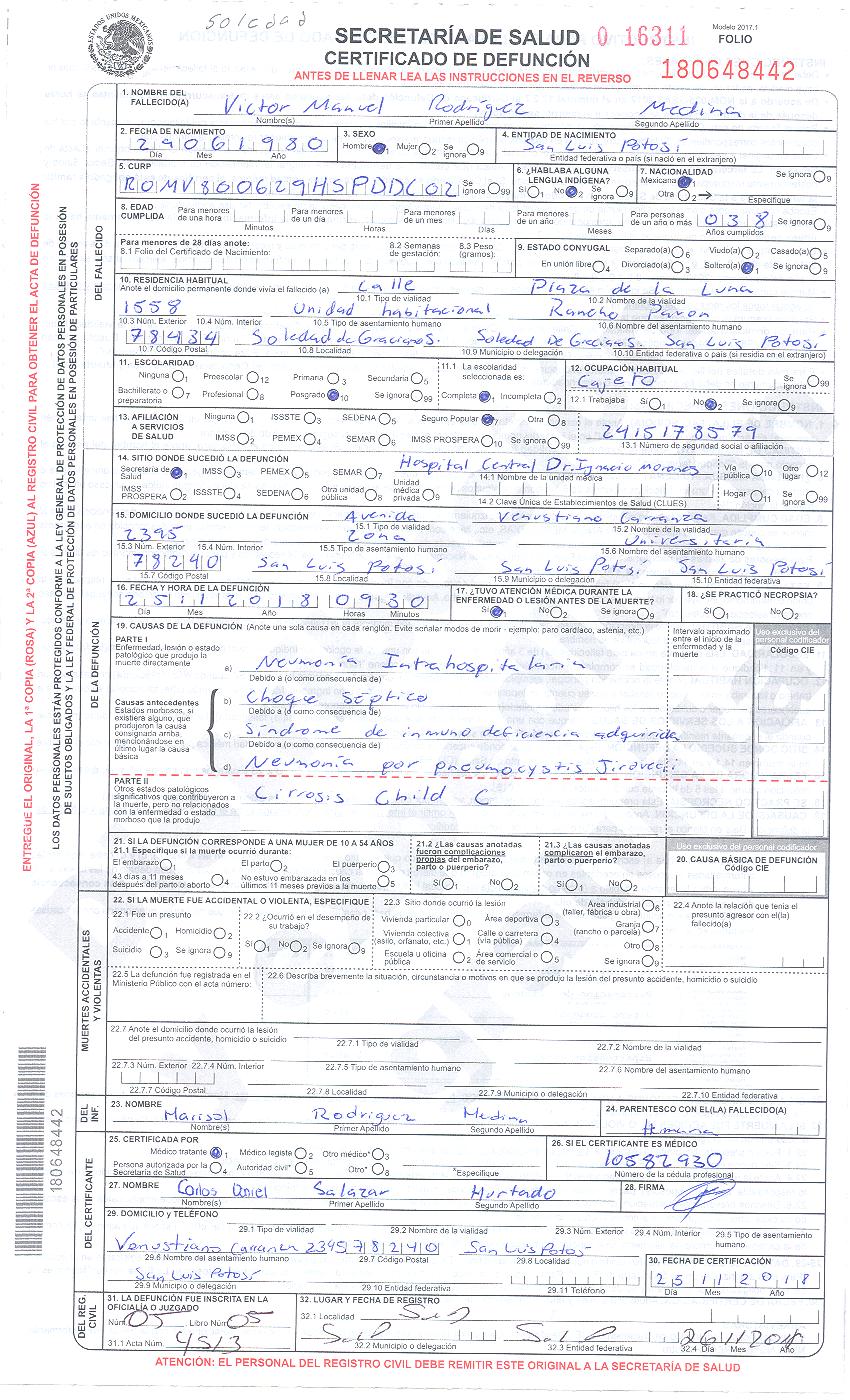 Soledad
ESTADOS UNIDOS MEXICANOS
SECRETARÍA DE SALUD 0 16311
Modelo 2017.1
CERTIFICADO DE DEFUNCIÓN
FOLIO
ANTES DE LLENAR LEA LAS INSTRUCCIONES EN EL REVERSO
180648442
ENTREGUE EL ORIGINAL, LA 1ª COPIA (ROSA) Y LA 2ª COPIA (AZUL) AL REGISTRO CIVIL PARA OBTENER EL ACTA DE DEFUNCIÓN
LOS DATOS PERSONALES ESTÁN PROTEGIDOS CONFORME A LA LEY GENERAL DE PROTECCIÓN DE DATOS PERSONALES EN POSESIÓN
DE SUJETOS OBLIGADOS Y LA LEY FEDERAL DE PROTECCIÓN DE DATOS PERSONALES EN POSESIÓN DE PARTICULARES
180648442
DEL FALLECIDO
1. NOMBRE DEL FALLECIDO(A) Victor Manuel Rodríguez Medina
Nombre(s) Primer Apellido Segundo Apellido
2. FECHA DE NACIMIENTO 29061980 3. SEXO Hombre 1 Mujer 2 Se ignora 9 4. ENTIDAD DE NACIMIENTO San Luis Potosí
Día Mes Año Entidad federativa o país (si nació en el extranjero)
5. CURP ROMV800629HSPDDC02 Se ignora 99 6. ¿HABLABA ALGUNA LENGUA INDÍGENA? Sí 1 No 2 Se ignora 9 7. NACIONALIDAD Mexicana 1 Otra 2 Especifique Se ignora 9
8. EDAD CUMPLIDA Para menores de una hora Minutos Para menores de un día Horas Para menores de un mes Días Para menores de un año Meses Para personas de un año o más 038 Años cumplidos Se ignora 9
Para menores de 28 días anote:
8.1 Folio del Certificado de Nacimiento: 8.2 Semanas de gestación: 8.3 Peso (gramos):
9. ESTADO CONYUGAL Separado(a) 6 Viudo(a) 2 Casado(a) 5
En unión libre 4 Divorciado(a) 3 Soltero(a) 1 Se ignora 9
10. RESIDENCIA HABITUAL
Anote el domicilio permanente donde vivía el fallecido (a) Calle Plaza de la Luna
10.1 Tipo de vialidad 10.2 Nombre de la vialidad
1558 Unidad habitacional Rancho Pavon
10.3 Núm. Exterior 10.4 Núm. Interior 10.5 Tipo de asentamiento humano 10.6 Nombre del asentamiento humano
78434 Soledad de Gracianos. Soledad De Gracianos. San Luis Potosí
10.7 Código Postal 10.8 Localidad 10.9 Municipio o delegación 10.10 Entidad federativa o país (si residía en el extranjero)
11. ESCOLARIDAD
Ninguna 1 Preescolar 12 Primaria 3 Secundaria 5
Bachillerato o preparatoria 7 Profesional 8 Posgrado 10 Se ignora 99
11.1 La escolaridad seleccionada es: Completa 1 Incompleta 2
12. OCUPACIÓN HABITUAL Cajero Se ignora 99
12.1 Trabajaba Sí 1 No 2 Se ignora 9
13. AFILIACIÓN A SERVICIOS DE SALUD
Ninguna 1 ISSSTE 3 SEDENA 5 Seguro Popular 7 Otra 8
IMSS 2 PEMEX 4 SEMAR 6 IMSS PROSPERA 10 Se ignora 99
2415178579
13.1 Número de seguridad social o afiliación
14. SITIO DONDE SUCEDIÓ LA DEFUNCIÓN
Secretaría de Salud 1 IMSS 3 PEMEX 5 SEMAR 7 Hospital Central Dr. Ignacio Morones Vía pública 10 Otro lugar 12
14.1 Nombre de la unidad médica
IMSS PROSPERA 2 ISSSTE 4 SEDENA 6 Otra unidad pública 8 Unidad médica privada 9 Hogar 11 Se ignora 99
14.2 Clave Única de Establecimientos de Salud (CLUES)
15. DOMICILIO DONDE SUCEDIÓ LA DEFUNCIÓN Avenida Venustiano Carranza
15.1 Tipo de vialidad 15.2 Nombre de la vialidad
2395 Zona Universitaria
15.3 Núm. Exterior 15.4 Núm. Interior 15.5 Tipo de asentamiento humano 15.6 Nombre del asentamiento humano
78240 San Luis Potosí San Luis Potosí San Luis Potosí
15.7 Código Postal 15.8 Localidad 15.9 Municipio o delegación 15.10 Entidad federativa
16. FECHA Y HORA DE LA DEFUNCIÓN 25112018 0930
Día Mes Año Horas Minutos
17. ¿TUVO ATENCIÓN MÉDICA DURANTE LA ENFERMEDAD O LESIÓN ANTES DE LA MUERTE? Sí 1 No 2 Se ignora 9
18. ¿SE PRACTICÓ NECROPSIA? Sí 1 No 2
DE LA DEFUNCIÓN
19. CAUSAS DE LA DEFUNCIÓN (Anote una sola causa en cada renglón. Evite señalar modos de morir - ejemplo: paro cardíaco, astenia, etc.)
Intervalo aproximado entre el inicio de la enfermedad y la muerte
Uso exclusivo del personal codificador
Código CIE
PARTE I
Enfermedad, lesión o estado patológico que produjo la muerte directamente
a) Neumonía Intrahospitalaria
Debido a (o como consecuencia de)
Causas antecedentes
Estados morbosos, si existiera alguno, que produjeron la causa consignada arriba, mencionándose en último lugar la causa básica
b) Choque Séptico
Debido a (o como consecuencia de)
c) Síndrome de inmuno deficiencia adquirida
Debido a (o como consecuencia de)
d) Neumonía por pneumocystis Jirovecii
PARTE II
Otros estados patológicos significativos que contribuyeron a la muerte, pero no relacionados con la enfermedad o estado morboso que la produjo
Cirrosis Child C
21. SI LA DEFUNCIÓN CORRESPONDE A UNA MUJER DE 10 A 54 AÑOS
21.1 Especifique si la muerte ocurrió durante:
El embarazo 1 El parto 2 El puerperio 3
43 días a 11 meses después del parto o aborto 4 No estuvo embarazada en los últimos 11 meses previos a la muerte 5
21.2 ¿Las causas anotadas fueron complicaciones propias del embarazo, parto o puerperio? Sí 1 No 2
21.3 ¿Las causas anotadas complicaron el embarazo, parto o puerperio? Sí 1 No 2
Uso exclusivo del personal codificador
20. CAUSA BÁSICA DE DEFUNCIÓN
Código CIE
MUERTES ACCIDENTALES Y VIOLENTAS
22. SI LA MUERTE FUE ACCIDENTAL O VIOLENTA, ESPECIFIQUE
22.1 Fue un presunto
Accidente 1 Homicidio 2
Suicidio 3 Se ignora 9
22.2 ¿Ocurrió en el desempeño de su trabajo?
Sí 1 No 2 Se ignora 9
22.3 Sitio donde ocurrió la lesión
Vivienda particular 0 Área deportiva 3 Área industrial (taller, fábrica u obra) 6
Vivienda colectiva (asilo, orfanato, etc.) 1 Calle o carretera (vía pública) 4 Granja (rancho o parcela) 7
Escuela u oficina pública 2 Área comercial o de servicio 5 Otro 8
Se ignora 9
22.4 Anote la relación que tenía el presunto agresor con el(la) fallecido(a)
22.5 La defunción fue registrada en el Ministerio Público con el acta número:
22.6 Describa brevemente la situación, circunstancia o motivos en que se produjo la lesión del presunto accidente, homicidio o suicidio
22.7 Anote el domicilio donde ocurrió la lesión del presunto accidente, homicidio o suicidio
22.7.1 Tipo de vialidad 22.7.2 Nombre de la vialidad
22.7.3 Núm. Exterior 22.7.4 Núm. Interior 22.7.5 Tipo de asentamiento humano 22.7.6 Nombre del asentamiento humano
22.7.7 Código Postal 22.7.8 Localidad 22.7.9 Municipio o delegación 22.7.10 Entidad federativa
DEL INF.
23. NOMBRE Marisol Rodríguez Medina
Nombre(s) Primer Apellido Segundo Apellido
24. PARENTESCO CON EL(LA) FALLECIDO(A)
Hermana
DEL CERTIFICANTE
25. CERTIFICADA POR
Médico tratante 1 Médico legista 2 Otro médico* 3
Persona autorizada por la Secretaría de Salud 4 Autoridad civil* 5 Otro* 8 *Especifique
26. SI EL CERTIFICANTE ES MÉDICO
10582930
Número de la cédula profesional
27. NOMBRE Carlos Daniel Salazar Hurtado
Nombre(s) Primer Apellido Segundo Apellido
28. FIRMA
29. DOMICILIO y TELÉFONO
29.1 Tipo de vialidad 29.2 Nombre de la vialidad 29.3 Núm. Exterior 29.4 Núm. Interior 29.5 Tipo de asentamiento humano
Venustiano Carranza 2395 78240 San Luis Potosí
29.6 Nombre del asentamiento humano 29.7 Código Postal 29.8 Localidad
San Luis Potosí
29.9 Municipio o delegación 29.10 Entidad federativa 29.11 Teléfono
30. FECHA DE CERTIFICACIÓN
25112018
Día Mes Año
DEL REG. CIVIL
31. LA DEFUNCIÓN FUE INSCRITA EN LA OFICIALÍA O JUZGADO
Núm. 05 Libro Núm. 05
31.1 Acta Núm. 4513
32. LUGAR Y FECHA DE REGISTRO
32.1 Localidad
32.2 Municipio o delegación 32.3 Entidad federativa 32.4 Día Mes Año
26112018
ATENCIÓN: EL PERSONAL DEL REGISTRO CIVIL DEBE REMITIR ESTE ORIGINAL A LA SECRETARÍA DE SALUD